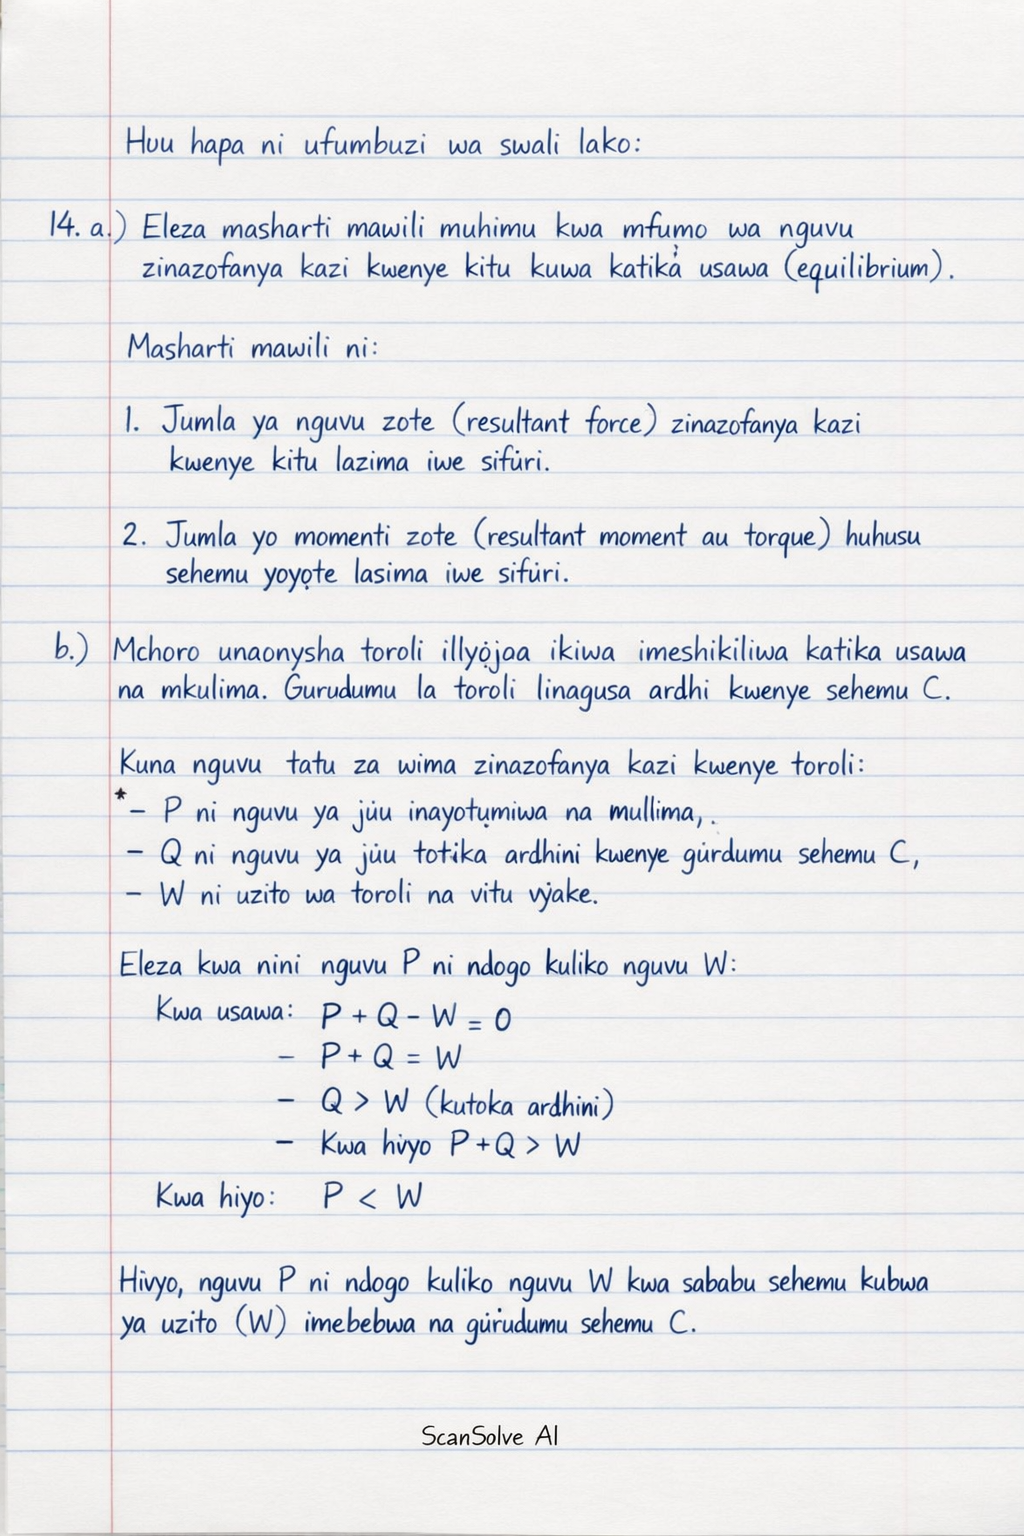 Huu hapa ni ufumbuzi wa swali lako:
14. a.) Eleza masharti mawili muhimu kwa mfumo wa nguvu
zinazofanya kazi kwenye kitu kuwa katika usawa (equilibrium).
Masharti mawili ni:
1. Jumla ya nguvu zote (resultant force) zinazofanya kazi
kwenye kitu lazima iwe sifuri.
2. Jumla yo momenti zote (resultant moment au torque) huhusu
sehemu yoyote lasima iwe sifuri.
b.) Mchoro unaonysha toroli illyojaa ikiwa imeshikiliwa katika usawa
na mkulima. Gurudumu la toroli linagusa ardhi kwenye sehemu C.
Kuna nguvu tatu za wima zinazofanya kazi kwenye toroli:
* – P ni nguvu ya juu inayotumiwa na mullima,.
– Q ni nguvu ya juu totika ardhini kwenye gurdumu sehemu C,
– W ni uzito wa toroli na vitu vyake.
Eleza kwa nini nguvu P ni ndogo kuliko nguvu W:
Kwa usawa: P + Q – W = 0
– P + Q = W
– Q > W (kutoka ardhini)
– Kwa hivyo P + Q > W
Kwa hiyo: P < W
Hivyo, nguvu P ni ndogo kuliko nguvu W kwa sababu sehemu kubwa
ya uzito (W) imebebwa na gurudumu sehemu C.
ScanSolve AI